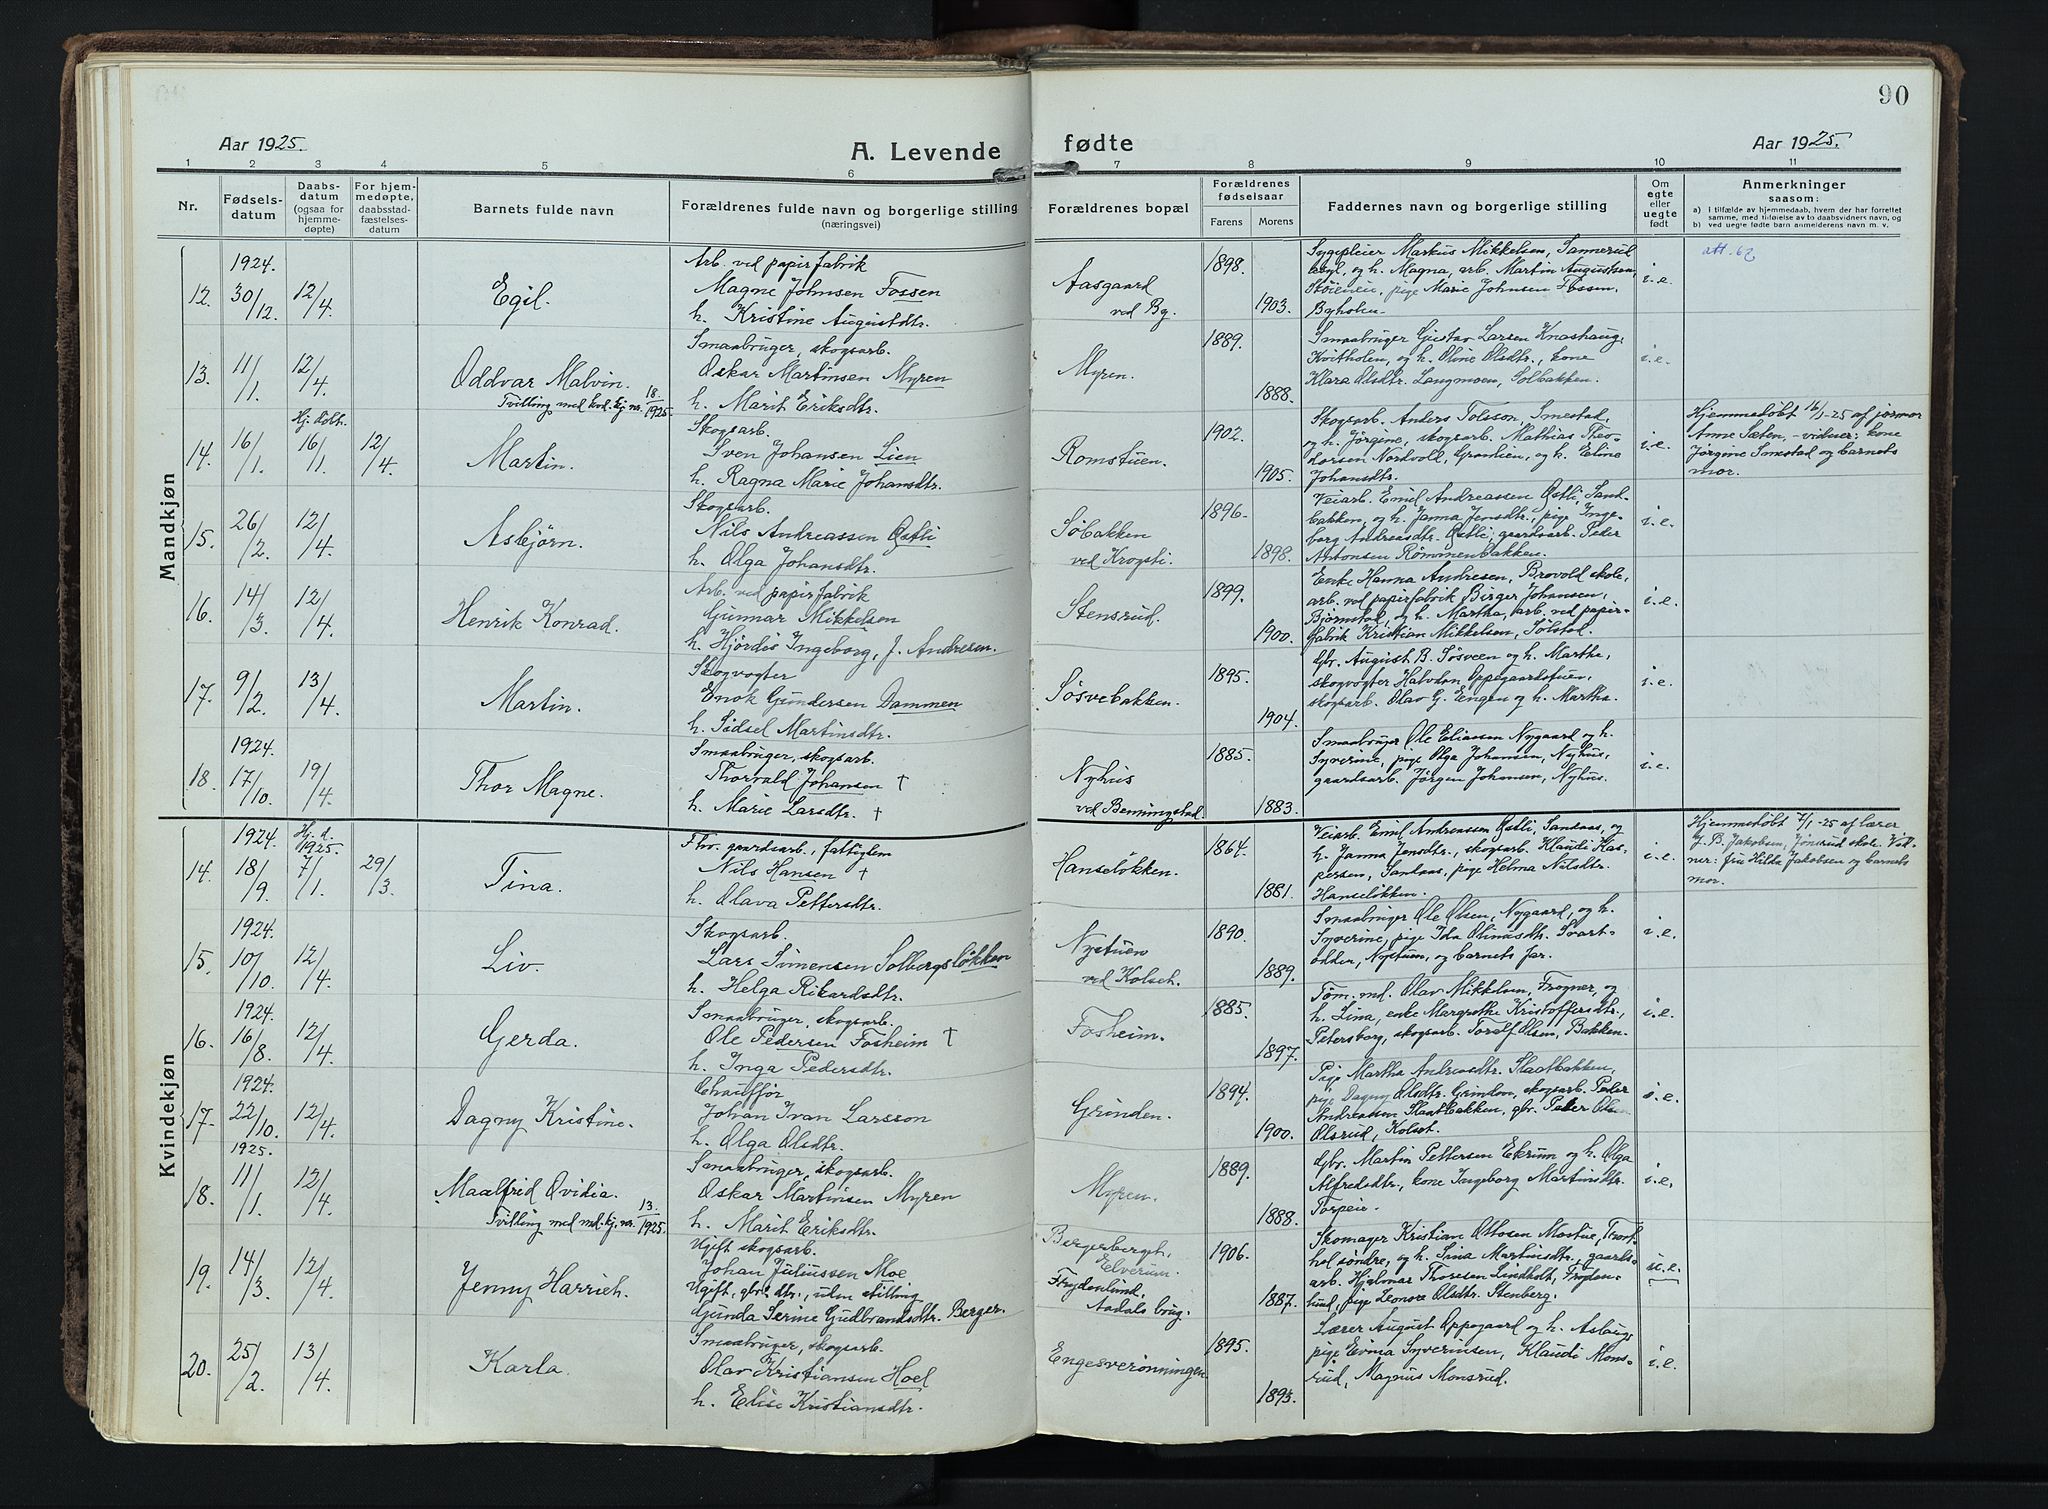 90
Aar 1925.
A. Levende
fødte
Aar 1925.
1 2 3 4 5 6 7 8 9 10 11
Nr.
Fødsels-
datum
Daabs-
datum
(ogsaa for
hjemme-
døpte)
For hjem-
medøpte,
daabsstad-
fæstelses-
datum
Barnets fulde navn
Forældrenes fulde navn og borgerlige stilling
(næringsvei)
Forældrenes bopæl
Forældrenes
fødselsaar
Farens Morens
Faddernes navn og borgerlige stilling
Om
egte
eller
uegte
født
Anmerkninger
saasom:
a) I tilfælde av hjemmedaab, hvem der har forrettet
samme, med tilføielse av to daabsvidners navn, og
b) ved uegte fødte barn anmelderens navn m. v.
Mandkjøn
12. 1924. 30/12. 12/4. Egil.
Arb. ved papirfabrik
Magne Johnsen Fossen
h. Kristine Augustdtr.
Aasgaard
ved By.
1898. 1903.
Sygepleier Markus Mikkelsen, Sannerud
asyl, og h. Magna, arb. Martin Augustsen,
Støieneie, pige Marie Johnsen Fossen,
Byholen.
i.e.
att. 62
13. 11/1. 12/4. Oddvar Malvin.
Tvilling med kvd. kj. nr. 18./1925.
Smaabruger, skogsarb.
Oskar Martinsen Myren
h. Marit Eriksdtr.
Myren.
1889. 1888.
Smaabruger Gustav Larsen Knashaug,
Kvitholen, og h. Oline Olsdtr., kone
Klara Olsdtr. Langmoen, Solbakken.
i.e.
14. 16/1. Hj. døbt. 16/1. 12/4. Martin.
Skogsarb.
Sven Johansen Lien
h. Ragna Marie Johansdtr.
Romstuen.
1902. 1905.
Skogsarb. Anders Tolsson, Smestad,
og h. Jørgine, skogsarb. Mathias Theo-
dorsen Nordvold, Granlien, og h. Eline
Johansdtr.
i.e.
Hjemmedøbt 16/1-25 af jormor
Anne Sæten, - vidner: kone
Jørgine Smestad og barnets
mor.
15. 26/2. 12/4. Asbjørn.
Skogsarb.
Nils Andreassen Østli
h. Olga Johansdtr.
Søbakken
ved Krogsti.
1896. 1898.
Veiarb. Emil Andreassen Østli, Sand-
bakken, og h. Janna Jensdtr., pige Inge-
borg Andreasdtr. Østli, gaardsarb. Peder
Antonsen Rømmenbakken.
i.e.
16. 14/3. 12/4. Henrik Konrad.
Arb. ved papirfabrik
Gunnar Mikkelsen
h. Hjørdis Ingeborg, f. Andresen.
Stensrud.
1899. 1900.
Enke Hanna Andresen, Brovold skole,
arb. ved papirfabrik Birger Johansen,
Bjørnstad, og h. Martha, arb. ved papir-
fabrik Kristian Mikkelsen, Solstad.
i.e.
17. 9/2. 13/4. Martin.
Skogvogter
Enok Gundersen Dammen
h. Sidsel Martinsdtr.
Søsvebakken.
1895. 1904.
Gbr. August B. Søsveen og h. Marthe,
skogvogter Halvdan Oppegaardstuen,
skogsarb. Olav G. Engen og h. Martha.
i.e.
18. 1924. 17/10. 19/4. Thor Magne.
Smaabruger, skogsarb.
Thorvald Johansen †
h. Marie Larsdtr. †
Nyhus
ved Benningstad.
1885. 1883.
Smaabruger Ole Eliassen Nygaard og h.
Syverine, pige Olga Johansen, Nyhus,
gaardsarb. Jørgen Johansen, Nyhus.
i.e.
Kvindekjøn
14. 1924. 18/9. Hj. d. 1925. 7/1. 29/3. Tina.
Fhv. gaardsarb., fattiglem
Nils Hansen †
h. Olava Pettersdtr.
Hanseløkken.
1864. 1881.
Veiarb. Emil Andreassen Østli, Sandaas, og
h. Janna Jensdtr., skogsarb. Klaudi Kas-
persen, Sandaas, pige Helma Nilsdtr.
Hanseløkken.
i.e.
Hjemmedøbt 7/1-25 af lærer
J. B. Jakobsen, Jønsrud skole. Vid-
ner: fru Hilda Jakobsen og barnets
mor.
15. 1924. 10/10. 12/4. Liv.
Skogsarb.
Lars Simensen Solbergsløkken
h. Helga Rikardsdtr.
Nystuen
ved Kolset.
1890. 1889.
Smaabruger Ole Olsen, Nygaard, og h.
Syverine, pige Ida Olinusdtr. Svart-
ødder, Nystuen, og barnets far.
i.e.
16. 1924. 16/8. 12/4. Gerda.
Smaabruger, skogsarb.
Ole Pedersen Fosheim †
h. Inga Pedersdtr.
Fosheim.
1885. 1897.
Tøm. md. Olav Mikkelsen, Frogner, og
h. Lina, enke Margrethe Kristoffersdtr.,
Petersborg, skogsarb. Torolf Olsen, Bakken.
i.e.
17. 1924. 22/10. 12/4. Dagny Kristine.
Chauffør
Johan Ivan Larsson
h. Olga Olsdtr.
Grinden.
1894. 1900.
Pige Martha Andreasdtr. Slaatbakken,
pige Dagny Olsdtr. Grinden, skogsarb. Peder
Andreassen Slaatbakken, gbr. Peter Olsen
Olsrud, Kolset.
i.e.
18. 1925. 11/1. 12/4. Maalfrid Ovidia.
Tvilling med md. kj. nr. 13./1925.
Smaabruger, skogsarb.
Oskar Martinsen Myren
h. Marit Eriksdtr.
Myren.
1889. 1888.
Gbr. Martin Pettersen Ekrum og h. Olga
Alfredsdtr., kone Ingeborg Martinsdtr.
Torpeie.
i.e.
19. 14/3. 12/4. Jenny Harriet.
Ugift skogsarb.
Johan Juliussen Moe
Ugift, gbr. dtr., uten stilling
Gunda Serine Gudbrandsdtr. Berger.
Bergerberget,
Elverum.
Frydenlund,
Aadals brug.
1906. 1887.
Skomager Kristian Ottosen Mostue, Trot-
hol søndre, og h. Lina Martinsdtr., gaards-
arb. Hjalmar Thoresen Lindholt, Fryden-
lund, pige Leonore Olsdtr. Stenberg.
u.e.
20. 25/2. 13/4. Karla.
Smaabruger, skogsarb.
Olav Kristiansen Hoel
h. Elise Kristiansdtr.
Engesverønningen.
1895. 1893.
Lærer August Oppegaard og h. Aslaug,
pige Evma Syverinsen, Klaudi Mons-
rud, Magnus Monsrud.
i.e.